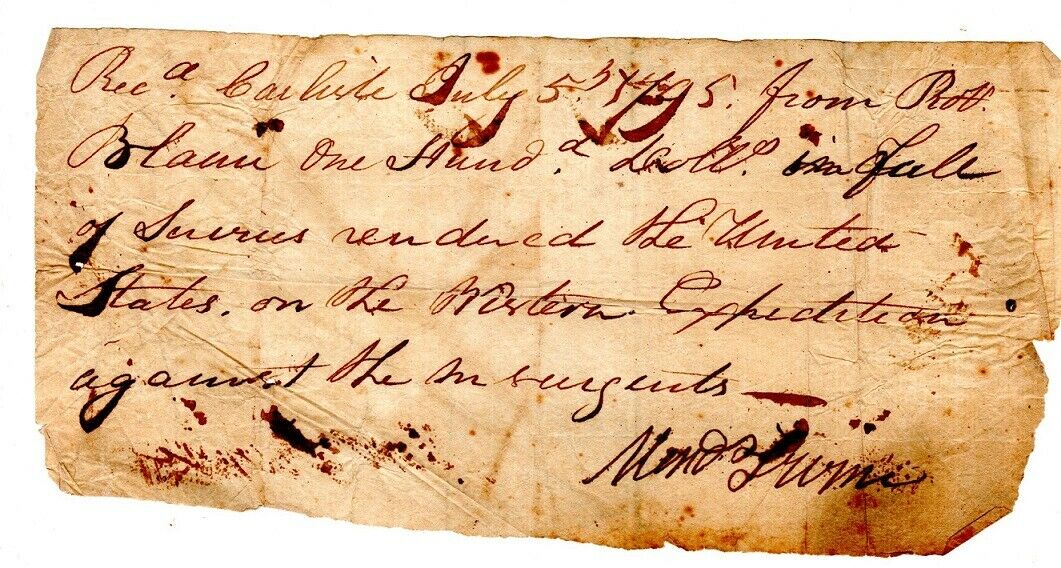 Recd. Carlisle July 5th 1795. from Robt.
Blaine One Hund.d Dolls. in full
of Services rendered the United
States, on the Western Expedition
against the Insurgents